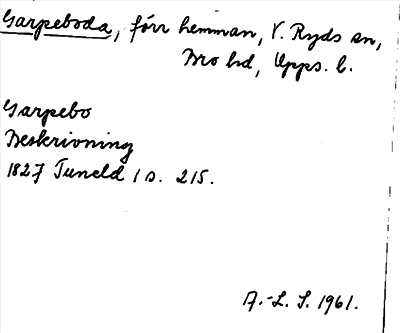 Garpeboda, förr hemman, V. Ryds sn,
Bro hd, Upps. l.
Garpebo
Beskrivning
1827 Tuneld 1 s. 215.
A.-L. S. 1961.